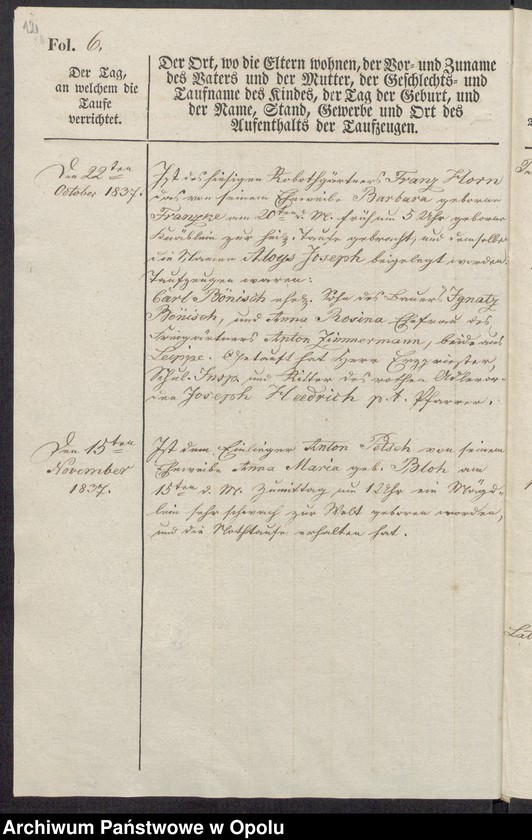 Fol. 6.
Der Tag,
an welchem die
Taufe
verrichtet.
Der Ort, wo die Eltern wohnen, der Vor- und Zuname
des Vaters und der Mutter, der Geschlechts- und
Taufname des Kindes, der Tag der Geburt, und
der Name, Stand, Gewerbe und Ort des
Aufenthalts der Taufzeugen.
Den 22ten
October 1837.
Ist des hiesigen Robothgärtners Franz Horn
das von seinem Eheweibe Barbara geborne
Franzke am 20ten d. M. früh um 5 Uhr geborne
Knäblein zur heil. Taufe gebracht, und demselben
die Namen Aloys Joseph beigelegt worden.
Taufzeugen waren:
Carl Bönisch ehel. Sohn des Bauers Ignatz
Bönisch, und Anna Rosina Ehefrau des
Freigärtners Anton Zimmermann, beide aus
Leippe. Getauft hat Herr Erzpriester,
Schul-Insp. und Ritter des rothen Adleror-
den Joseph Heedrich p. t. Pfarrer.
Den 15ten
November
1837.
Ist dem Einlieger Anton Petsch von seinem
Eheweibe Anna Maria geb. Bloh am
15ten d. M. Zumittag um 12 Uhr ein Mägd-
lein sehr schwach zur Welt geboren worden,
und die Nothtaufe erhalten hat.
Archiwum Państwowe w Opolu